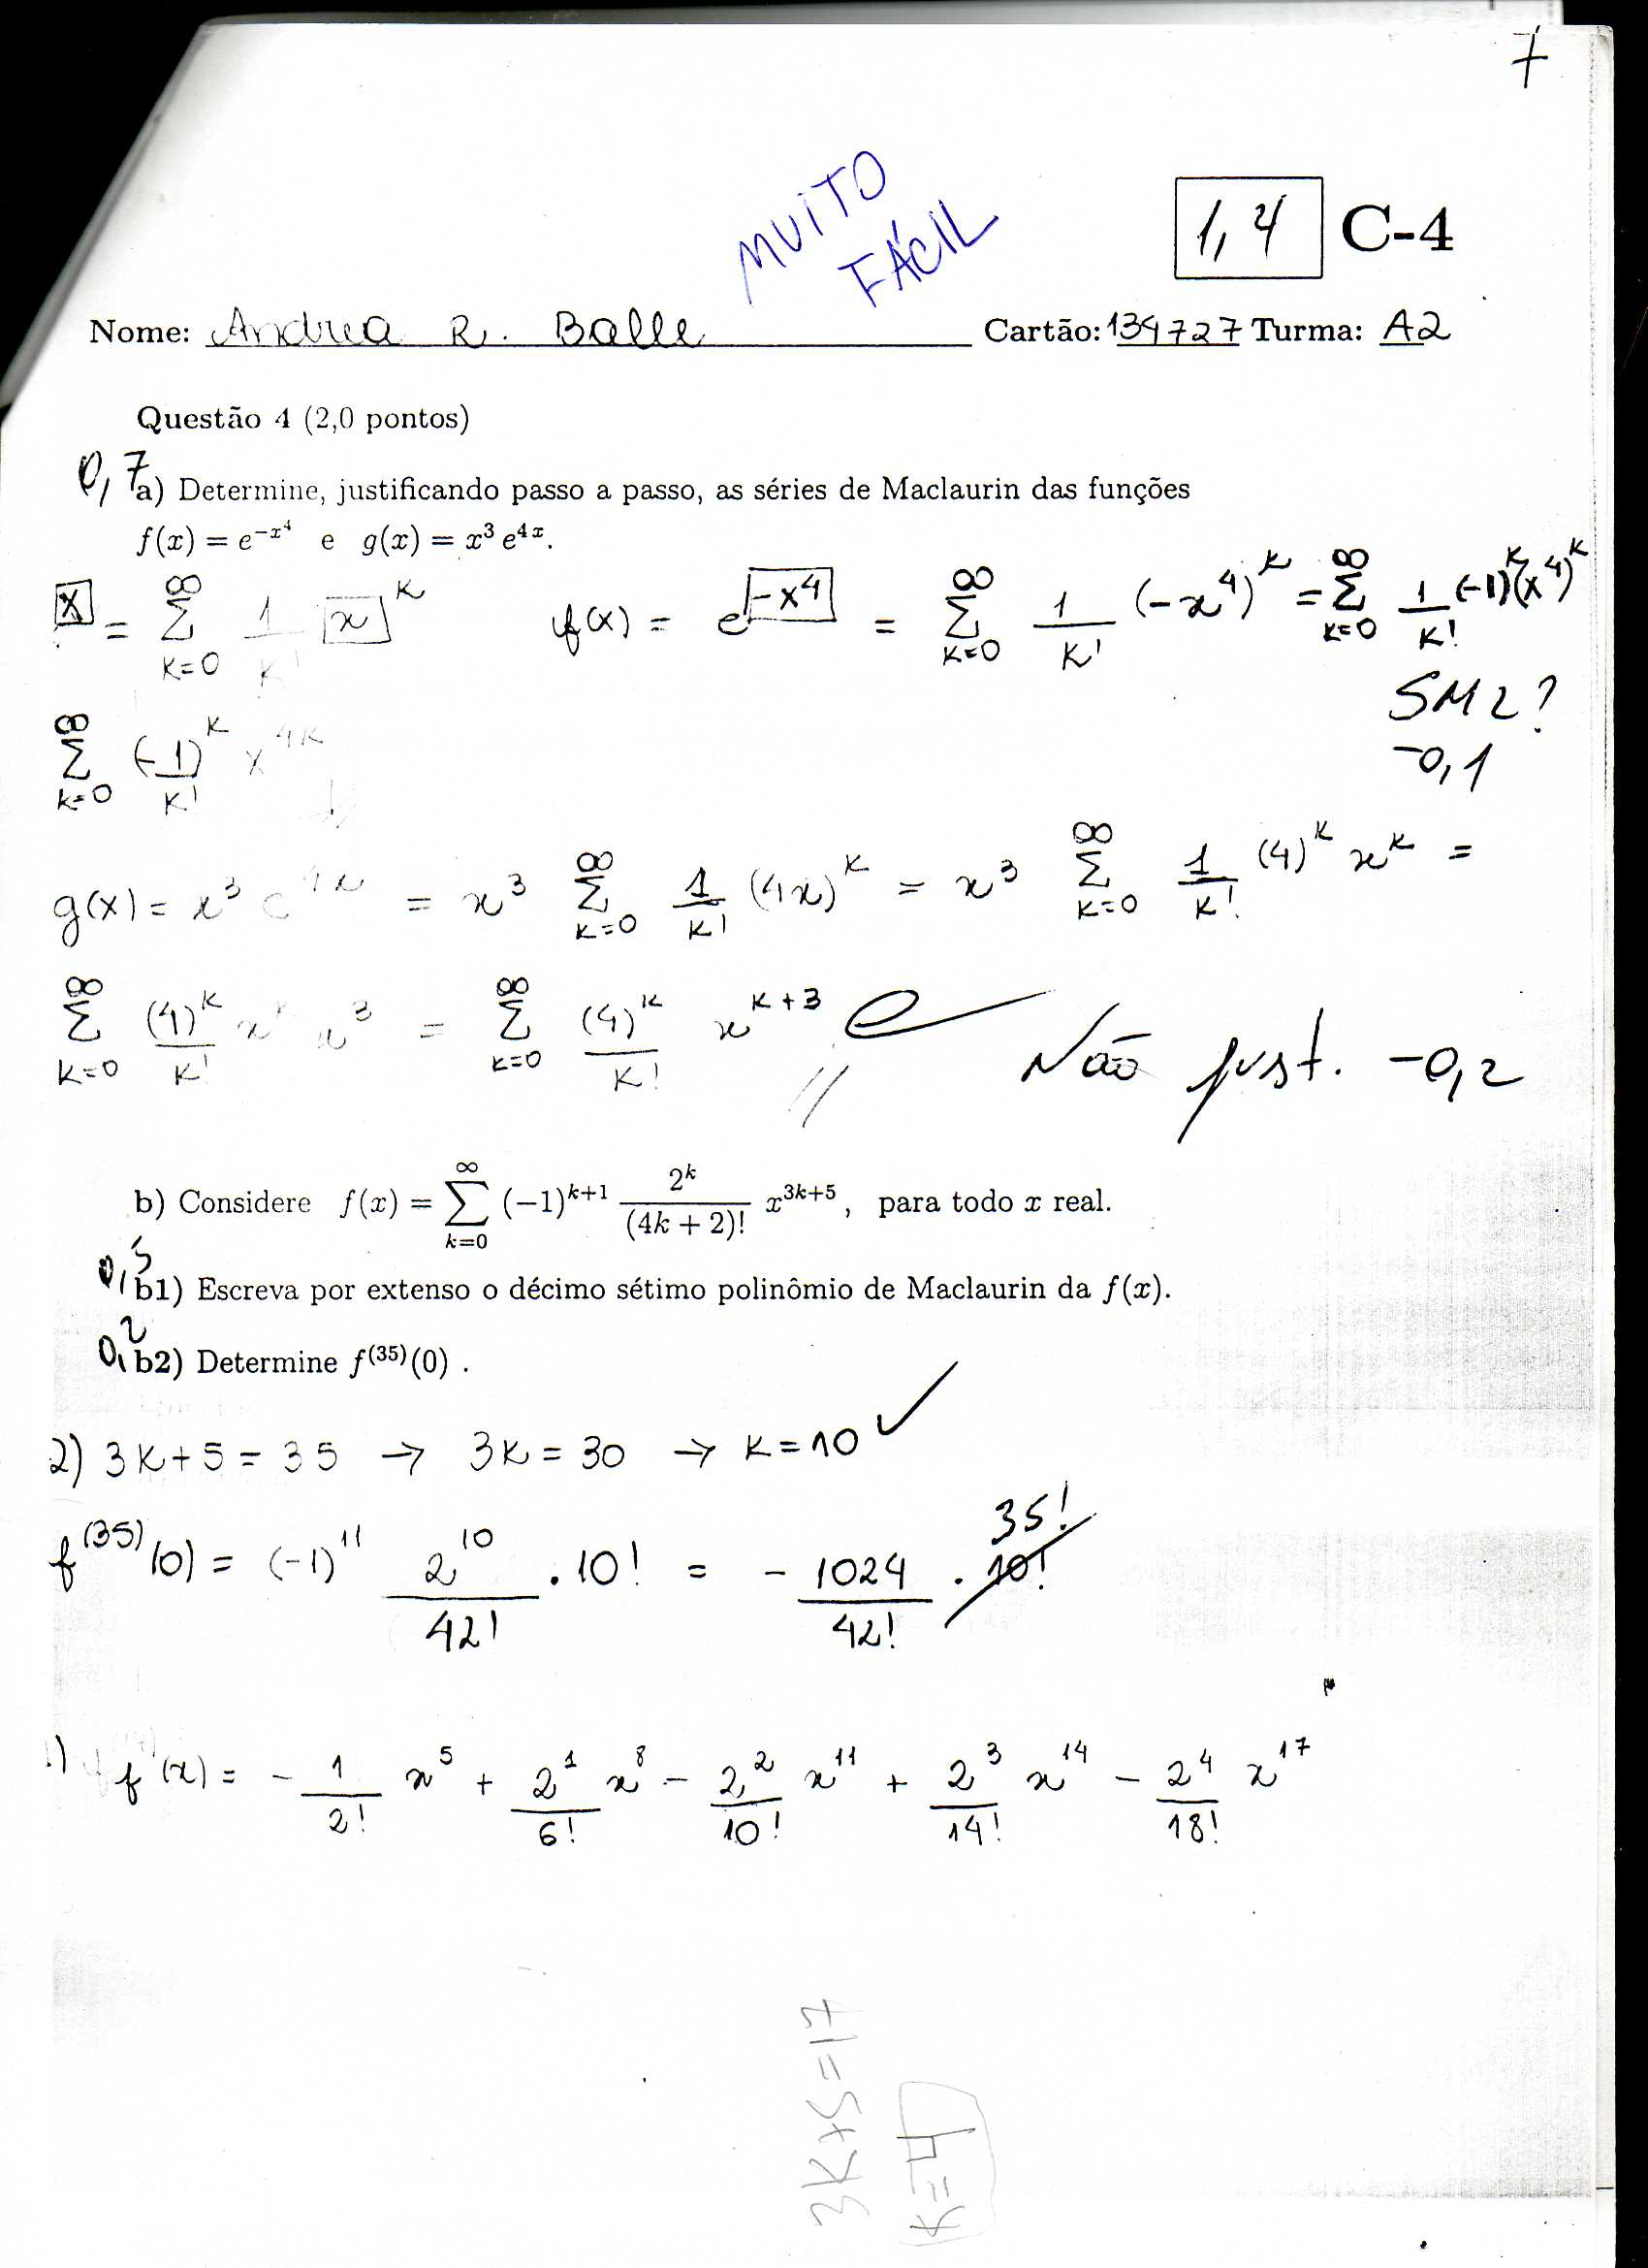 7
MUITO
FÁCIL
1,4 C-4
Nome: Andrea R. Balle Cartão: 134727 Turma: A2
Questão 4 (2,0 pontos)
0,7
a) Determine, justificando passo a passo, as séries de Maclaurin das funções
f(x) = e^{-x^4} e g(x) = x^3 e^{4x}.
x = ∑_{k=0}^{∞} 1/k! x^k f(x) = e^{-x^4} = ∑_{k=0}^{∞} 1/k! (-x^4)^k = ∑_{k=0}^{∞} 1/k! (-1)^k (x^4)^k
SM2?
-0,1
∑_{k=0}^{∞} (-1)^k/k! x^{4k}
g(x) = x^3 e^{4x} = x^3 ∑_{k=0}^{∞} 1/k! (4x)^k = x^3 ∑_{k=0}^{∞} 1/k! (4)^k x^k =
∑_{k=0}^{∞} (4)^k/k! x^k x^3 = ∑_{k=0}^{∞} (4)^k/k! x^{k+3}
Não just. -0,2
b) Considere f(x) = ∑_{k=0}^{∞} (-1)^{k+1} 2^k/(4k + 2)! x^{3k+5}, para todo x real.
0,5
b1) Escreva por extenso o décimo sétimo polinômio de Maclaurin da f(x).
0,2
b2) Determine f^{(35)}(0) .
2) 3k+5 = 35 → 3k = 30 → k = 10 ✓
35!
f^{(35)}(0) = (-1)^{11} 2^{10}/42! . 10! = - 1024/42! . 10!
1) f(x) = - 1/2! x^5 + 2^1/6! x^8 - 2^2/10! x^{11} + 2^3/14! x^{14} - 2^4/18! x^{17}
3k+5=17
k=4